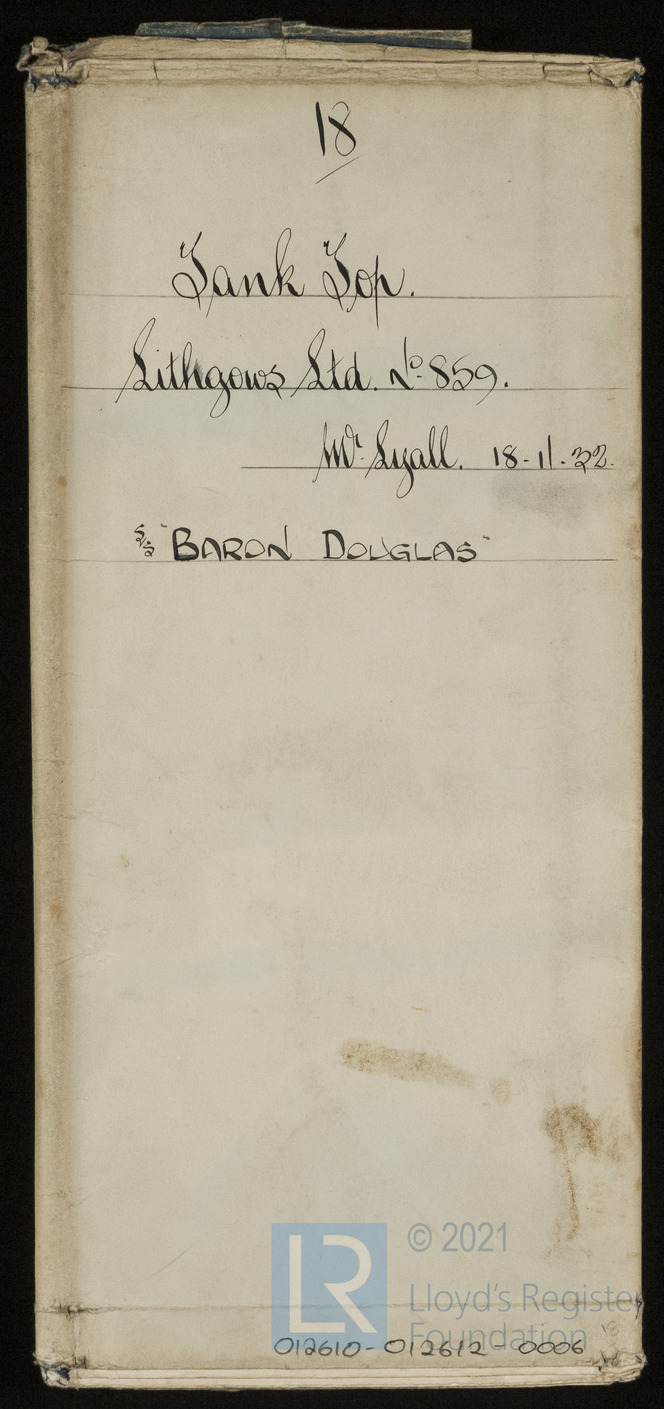 18
Tank Top.
Lithgows Ltd. No. 859.
Mr. Lyall. 18-11-32.
S/S "BARON DOUGLAS"
LR
© 2021
Lloyd's Register
Foundation
18
012610-012612-0006